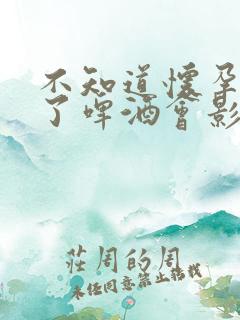 不知道懷孕
了啤酒會影
莊周的周
未经同意禁止搬载